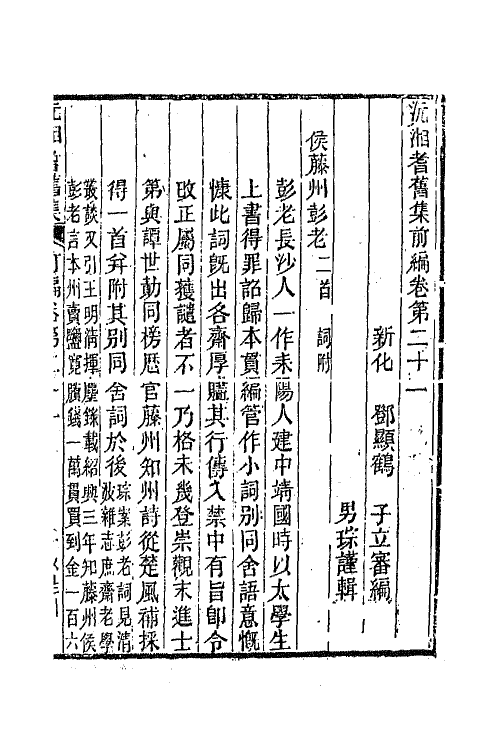 沅湘耆舊集前編卷第二十一
新化　鄧顯鶴　子立審編
男琮謹輯
侯藤州彭老二首　詞附
彭老長沙人一作耒陽人建中靖國時以太學生
上書得罪詔歸本貫編管作小詞別同舍語意慨
慷此詞旣出各齋厚贐其行傳入禁中有旨卽令
改正屬同獲譴者不一乃格未幾登崇觀末進士
第與譚世勣同榜歷官藤州知州詩從楚風補採
得一首幷附其別同舍詞於後琮案彭老詞見淸
波雜志庶齋老學
叢談又引王明淸揮麈錄載紹興三年知藤州侯
彭老言本州賣鹽寬賸錢一萬貫買到金一百六
沅湘耆舊集
前編卷第二十一